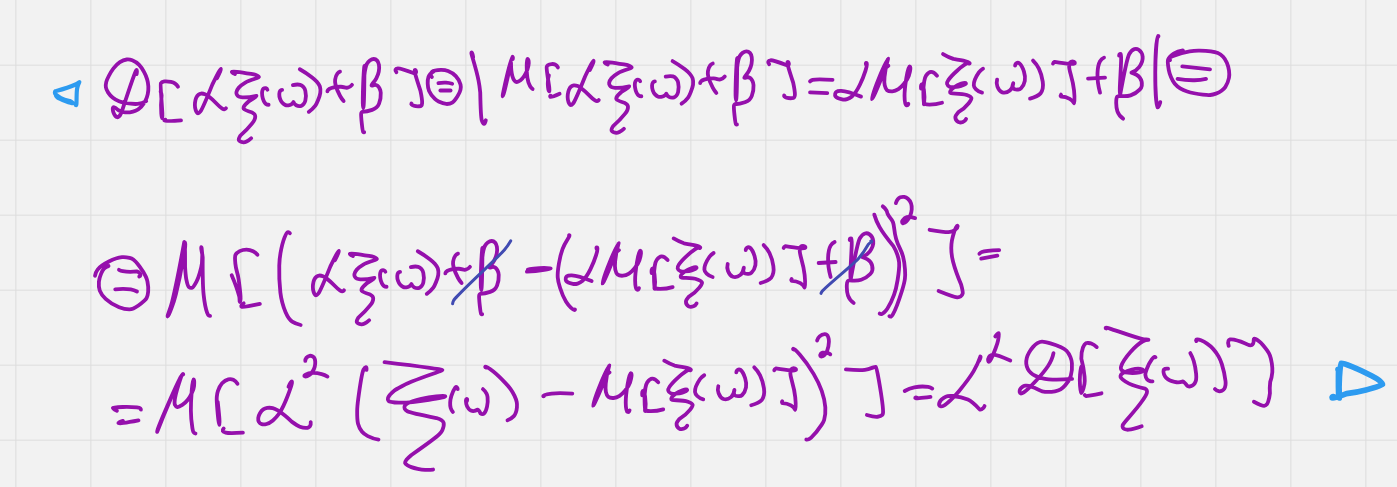 ◁ D[αξ(ω)+β] ⊜ | M[αξ(ω)+β] = αM[ξ(ω)]+β | ⊜
⊜ M[(αξ(ω)+β - (αM[ξ(ω)]+β))²] =
= M[α²(ξ(ω) - M[ξ(ω)])²] = α²D[ξ(ω)] ▷